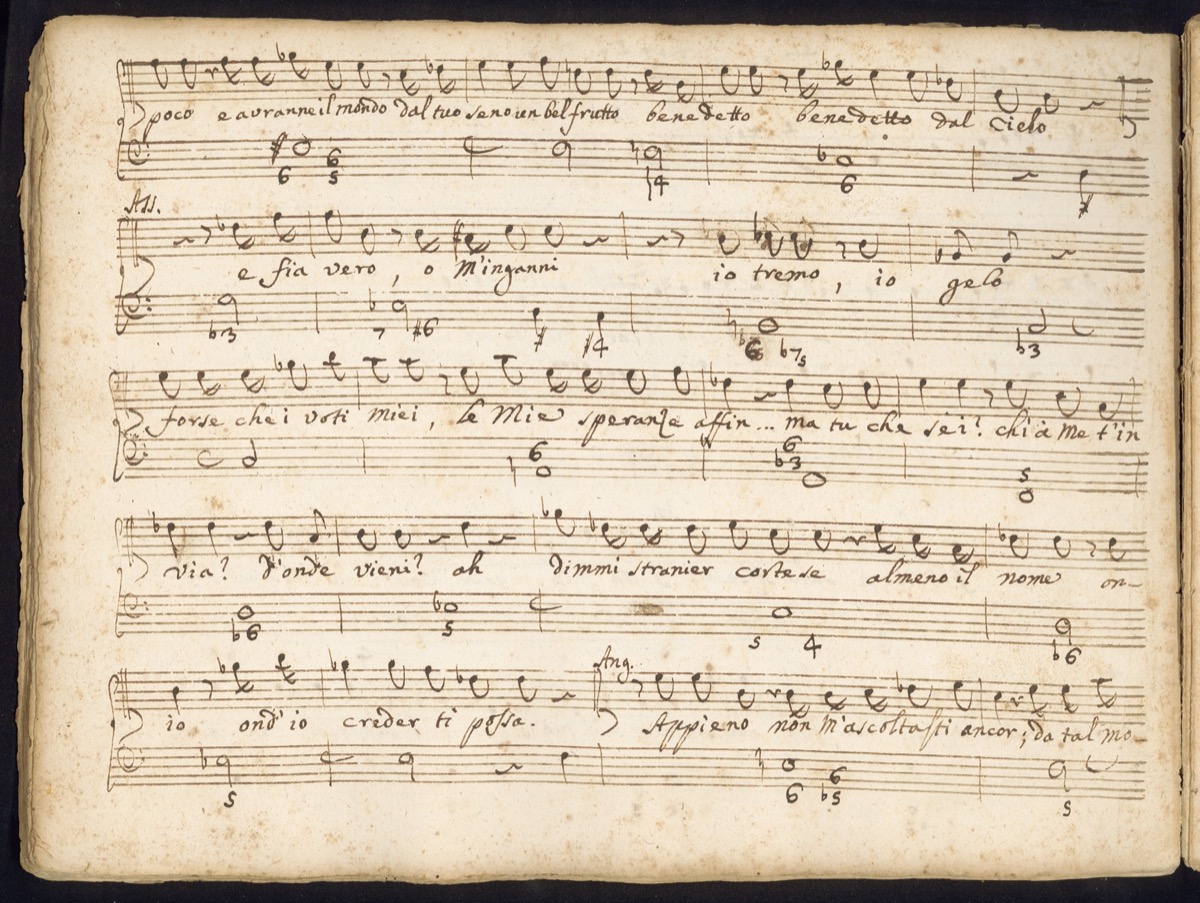 poco e avranne il mondo dal tuo seno un bel frutto benedetto benedetto dal cielo
6 6 5 4 6
Ass.
e sia vero, o m'inganni io tremo, io gelo
b3 7 #6 #4 6 b7 5 b3
forse che i voti miei, le mie speranze affin... ma tu che sei? chi à me t'in
6 6 b3 5
via? d'onde vieni? ah dimmi stranier cortese almeno il nome on-
b6 5 5 4 b6
Ang.
io ond'io creder ti possa. Appieno non m'ascoltasti ancor; da tal mo-
5 6 6 b5 5